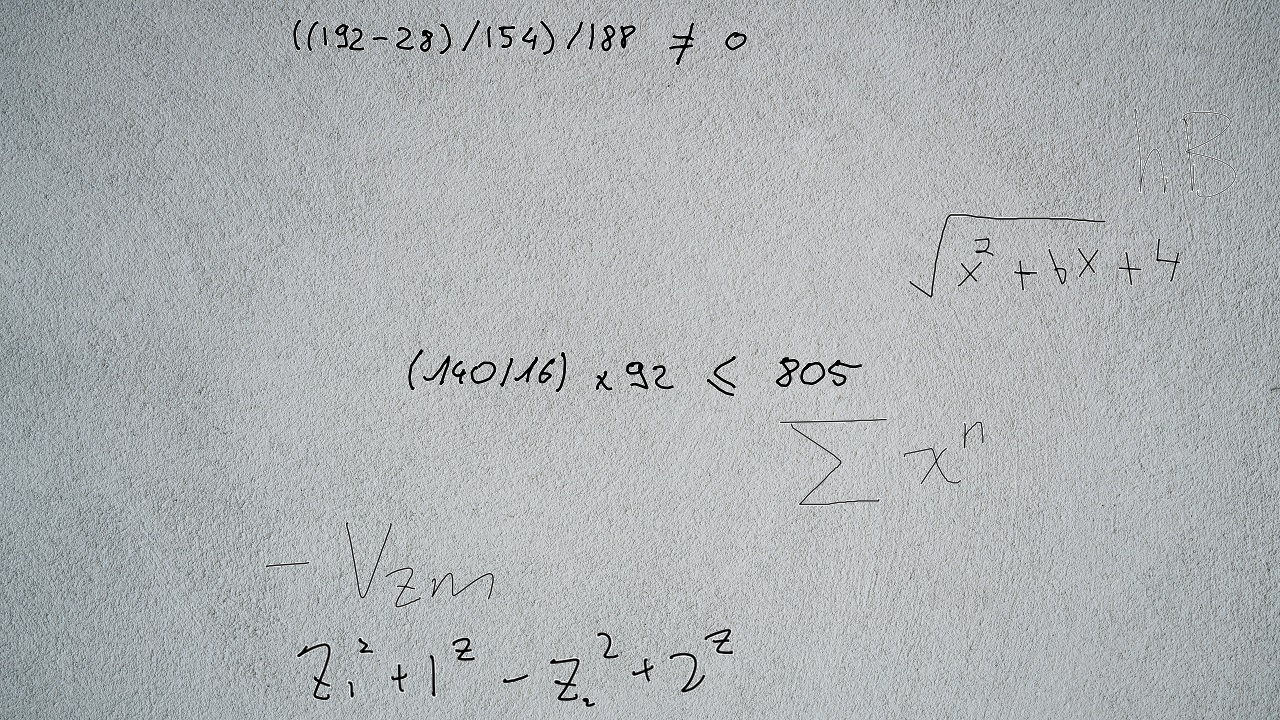 ((192-28)/154)/188 ≠ 0
hB
√(x² + bx) + 4
(140/16) x 92 ≤ 805
∑ xⁿ
- V_{zm}
z₁² + 1^z - z₂² + 2^z